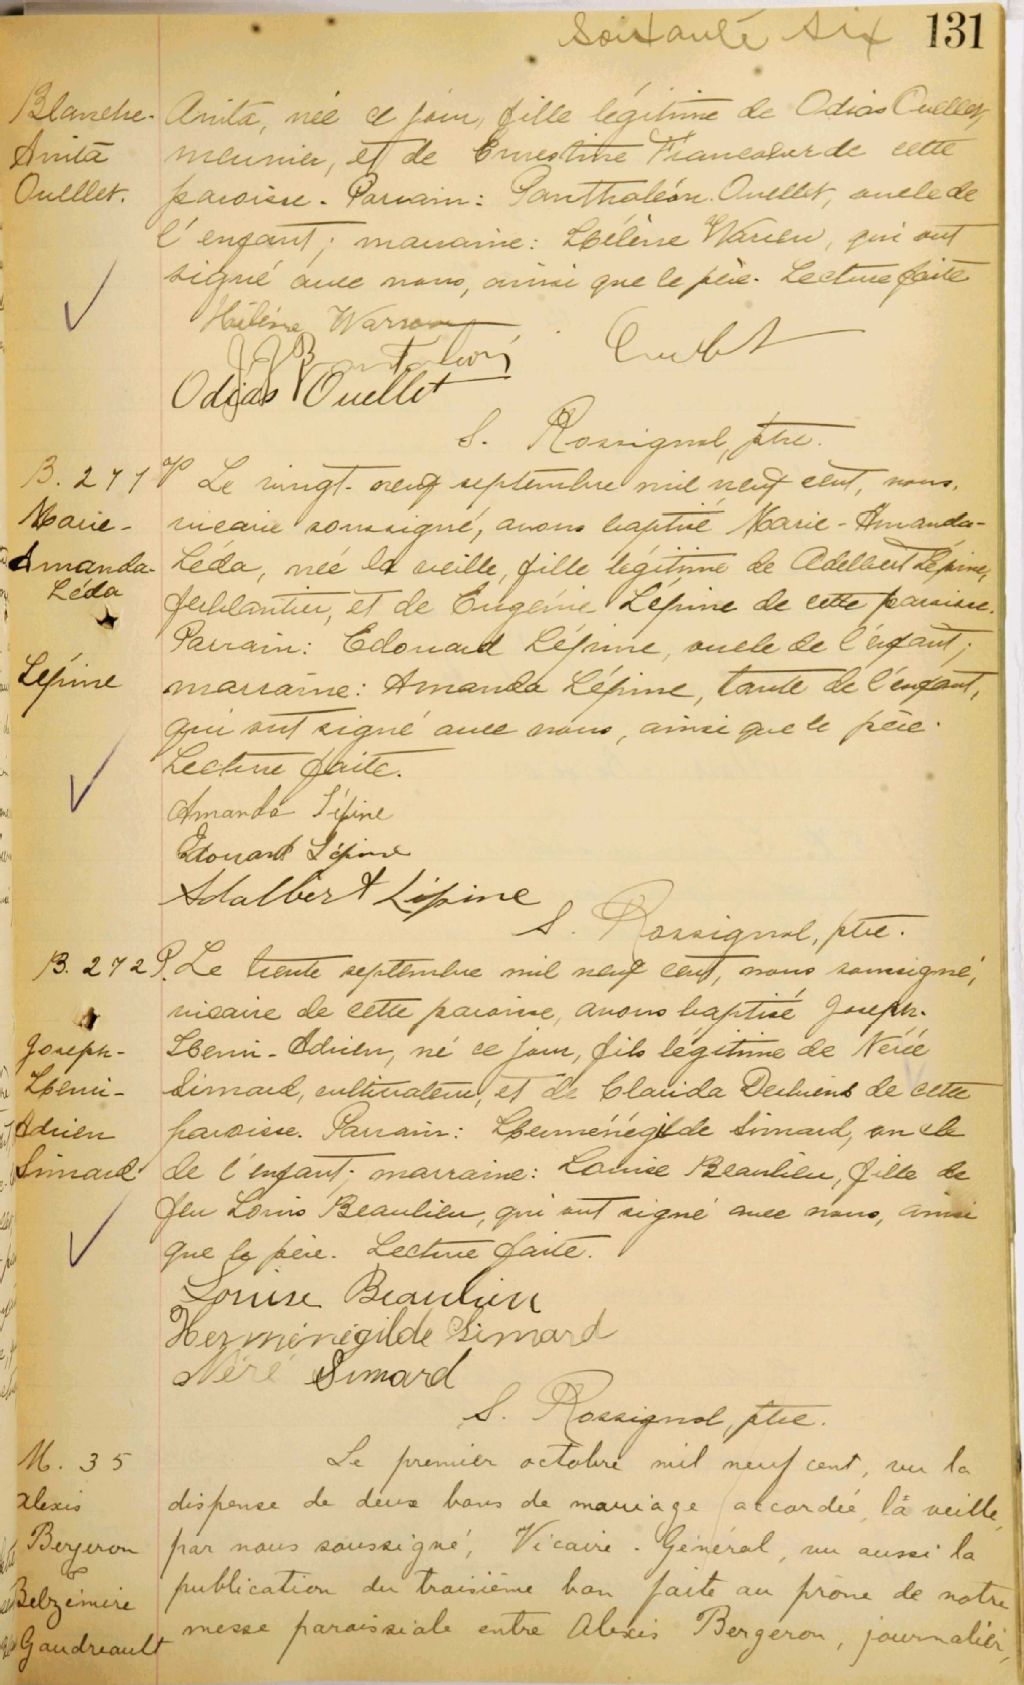 Soixante six 131
Blanche- Anita, née ce jour, fille légitime de Odias Ouellet,
Anita meunier, et de Ernestine Francoeur de cette
Ouellet. paroisse. Parrain: Panthaléon Ouellet, oncle de
l'enfant; marraine: Hélène Warren, qui ont
signé avec nous, ainsi que le père. Lecture faite
Hélène Warren
Odias Ouellet
S. Rossignol, ptre.
B. 271 Le vingt-neuf septembre mil neuf cent, nous,
Marie- vicaire soussigné, avons baptisé Marie-Amanda-
Amanda- Léda, née la veille, fille légitime de Adelbert Lépine,
Léda ferblantier, et de Eugénie Lépine de cette paroisse.
Parrain: Edouard Lépine, oncle de l'enfant;
Lépine marraine: Amanda Lépine, tante de l'enfant,
qui ont signé avec nous, ainsi que le père.
Lecture faite.
Amanda Lépine
Edouard Lépine
Adalbert Lépine
S. Rossignol, ptre.
B. 272 Le trente septembre mil neuf cent, nous soussigné,
vicaire de cette paroisse, avons baptisé Joseph-
Joseph- Henri-Adrien, né ce jour, fils légitime de Nérée
Henri- Simard, cultivateur, et de Clarida Dechiens de cette
Adrien paroisse. Parrain: Herménégilde Simard, oncle
Simard de l'enfant; marraine: Louise Beaulieu, fille de
feu Louis Beaulieu, qui ont signé avec nous, ainsi
que le père. Lecture faite.
Louise Beaulieu
Herménégilde Simard
Néré Simard
S. Rossignol, ptre.
M. 35 Le premier octobre mil neuf cent, vu la
Alexis dispense de deux bans de mariage accordée, la veille,
Bergeron par nous soussigné, Vicaire-Général, vu aussi la
& publication du troisième ban faite au prône de notre
Belzémire messe paroissiale entre Alexis Bergeron, journalier,
Gaudreault